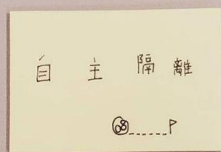 自主隔離